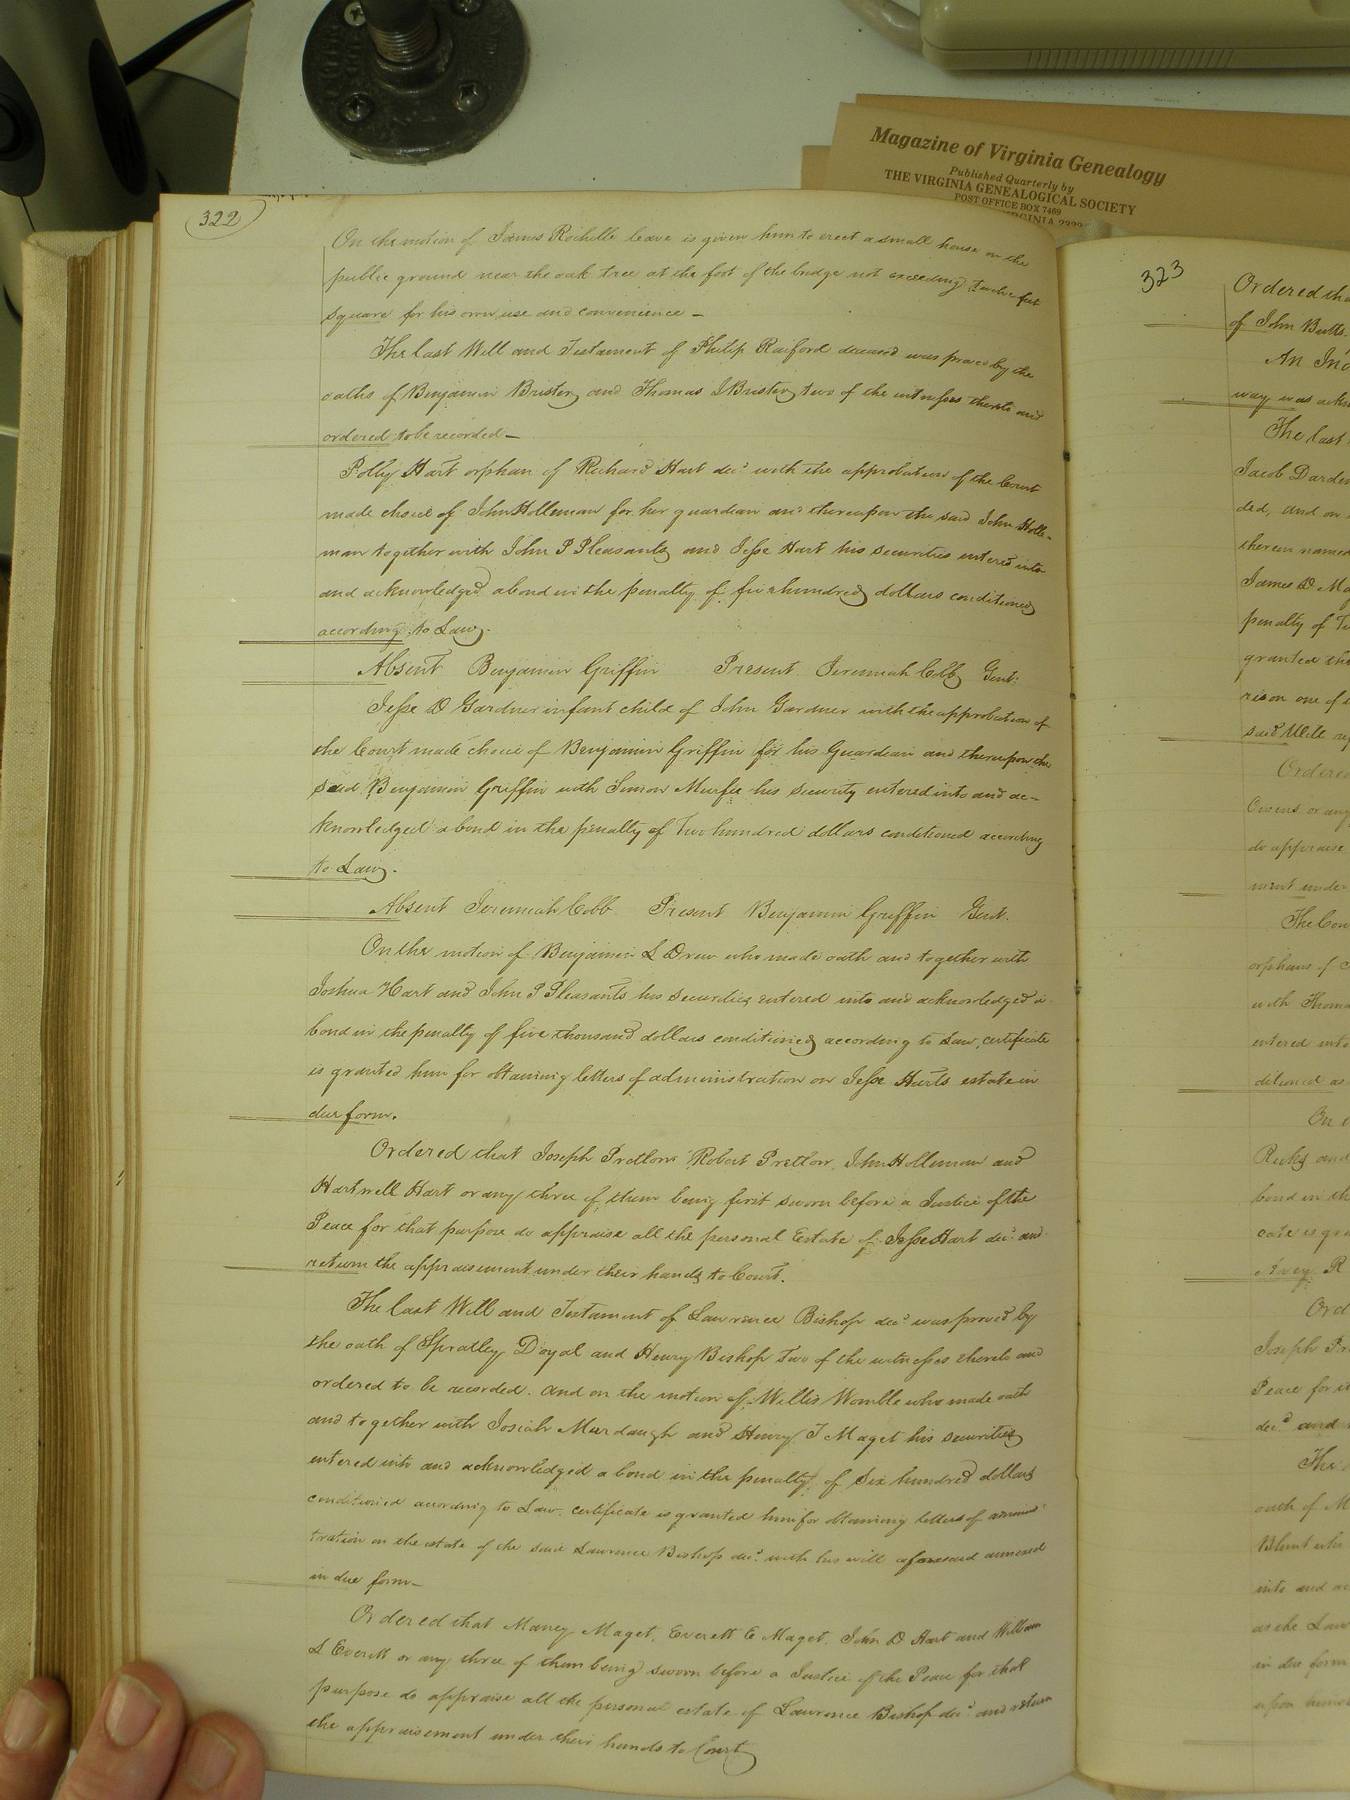 Magazine of Virginia Genealogy
Published Quarterly by
THE VIRGINIA GENEALOGICAL SOCIETY
POST OFFICE BOX 7469
322
On the motion of James Rochelle leave is given him to erect a small house on the
public ground near the oak tree at the foot of the bridge not exceeding twelve feet
square for his own use and convenience –
The last Will and Testament of Philip Raiford deceased was proved by the
oaths of Benjamin Brister and Thomas J Bristery two of the witnesses thereto and
ordered to be recorded –
Polly Hart orphan of Richard Hart decd. with the approbation of the Court
made choice of John Holleman for her guardian and thereupon the said John Holle-
man together with John P Pleasants and Jesse Hart his securities entered into
and acknowledged a bond in the penalty of five hundred dollars conditioned
according to Law.
Absent Benjamin Griffin Present Jeremiah Cobb Gent:
Jesse D Gardner infant child of John Gardner with the approbation of
the Court made choice of Benjamin Griffin for his Guardian and thereupon the
said Benjamin Griffin with Simon Murfee his security entered into and ac-
knowledged a bond in the penalty of Two hundred dollars conditioned according
to Law.
Absent Jeremiah Cobb Present Benjamin Griffin Gent.
On the motion of Benjamin L Drew who made oath and together with
Joshua Hart and John P Pleasants his securities entered into and acknowledged a
bond in the penalty of five thousand dollars conditioned according to Law, certificate
is granted him for obtaining letters of administration on Jesse Harts estate in
due form.
Ordered that Joseph Pretlow Robert Pretlow, John Holleman and
Hartwell Hart or any three of them being first sworn before a Justice of the
Peace for that purpose do appraise all the personal Estate of Jesse Hart decd. and
return the appraisement under their hands to Court.
The last Will and Testament of Lawrence Bishop decd. was proved by
the oath of Spratley Doyal and Henry Bishop two of the witnesses thereto and
ordered to be recorded. and on the motion of Willis Womble who made oath
and together with Josiah Murdaugh and Henry T Maget his securities
entered into and acknowledged a bond in the penalty of Six hundred dollars
conditioned according to Law. certificate is granted him for obtaining letters of adminis
tration on the estate of the said Lawrence Bishop decd. with his will aforesaid annexed
in due form –
Ordered that Maney Maget, Everett E Maget, John D Hart and William
L Everett or any three of them being sworn before a Justice of the Peace for that
purpose do appraise all the personal estate of Lawrence Bishop decd. and return
the appraisement under their hands to Court
323
Ordered tha
of John Butts.
An Ind
way was ackn
The last
Jacob Darden
ded, and on
therein named
James D Ma
penalty of T
granted the
rison one of
said Wills
Ordered
Owens or any
do appraise
ment under
The Cou
orphans of
with Thoma
entered into
ditioned as
On
Ricks and
bond in th
cate is gra
Avey R
Ord
Joseph Pr
Peace for
decd. and
The
oath of M
Blunt who
into and ac
as the Law
in due form
upon